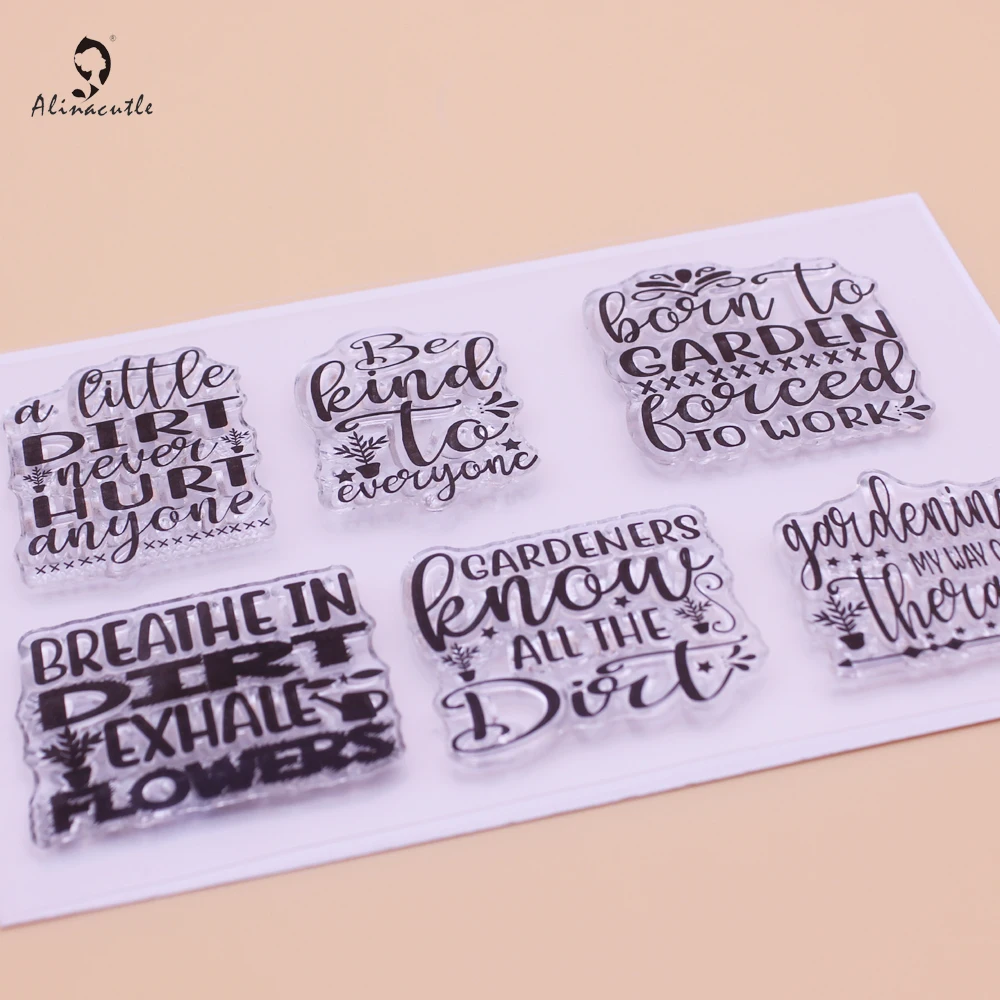 Alinacutle
a little
DIRT
never
HURT
anyone
Be
kind
to
everyone
born to
GARDEN
forced
TO WORK
BREATHE IN
DIRT
EXHALE
FLOWERS
GARDENERS
know
ALL THE
Dirt
MY WAY